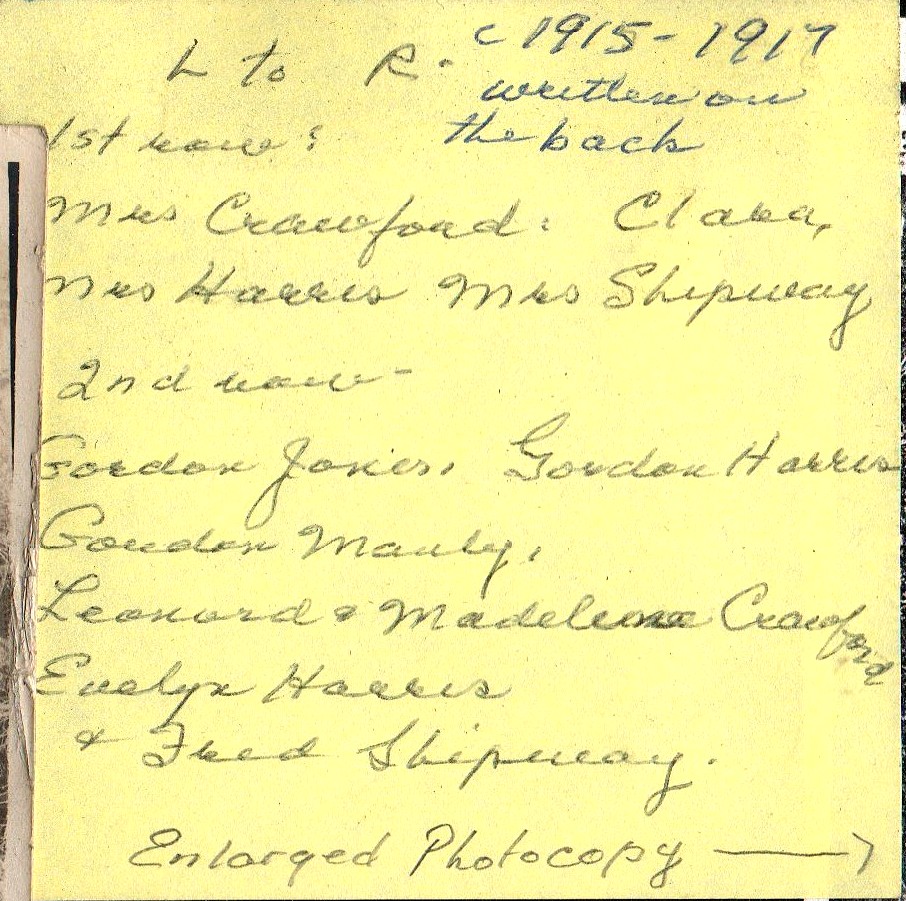 c 1915-1917
L to R.
written on
the back
1st row:
Mrs Crawford: Clara,
Mrs Harris Mrs Shipway
2nd row-
Gordon Jones, Gordon Harris
Gordon Manly,
Leonard & Madeleine Crawford
Evelyn Harris
& Fred Shipway.
Enlarged Photocopy →